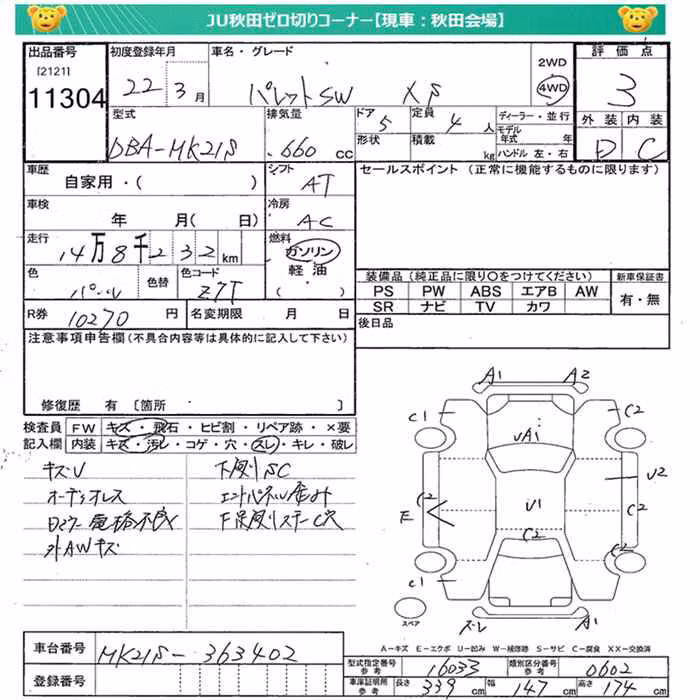 JU秋田ゼロ切りコーナー【現車：秋田会場】
出品番号 初度登録年月 車名・グレード 2WD 評価点
[2121] 11304 22年3月 パレットSW XS 4WD 3
型式 排気量 ドア 定員 ディーラー・並行 外装 内装
DBA-MK21S 660cc 5 4人 モデル年式 年 D C
形状 積載 kg ハンドル 左・右
車歴 シフト セールスポイント（正常に機能するものに限ります）
自家用・（ ） AT
車検 冷房
年 月（ 日） AC
走行 燃料
14万8千232km ガソリン
軽油
（ ）
色 色替 色コード 装備品（純正品に限り○をつけてください） 新車保証書
パール Z7T PS PW ABS エアB AW 有・無
SR ナビ TV カワ
R券 10270円 名変期限 月 日 後日品
注意事項申告欄（不具合内容等は具体的に記入して下さい）
修復歴 有〔箇所 〕
検査員 FW キズ・飛石・ヒビ割・リペア跡・×要
記入欄 内装 キズ・汚レ・コゲ・穴・スレ・キレ・破レ
キズU 下廻りSC
オーディオレス エンドパネル
ロミラー 格不良 F足廻りステーC穴
外AWキズ
A1 A2
C1 C2
UA1
C2 U2
E U1 C2
C2
C1 C2
スレ A1
スペア
A－キズ E－エクボ U－凹み W－補修跡 S－サビ C－腐食 XX－交換済
車台番号 MK21S-363402
登録番号
型式指定番号 参考 16033 類別区分番号 参考 0602
車庫証明所 参考 長さ 339cm 幅 147cm 高さ 174cm